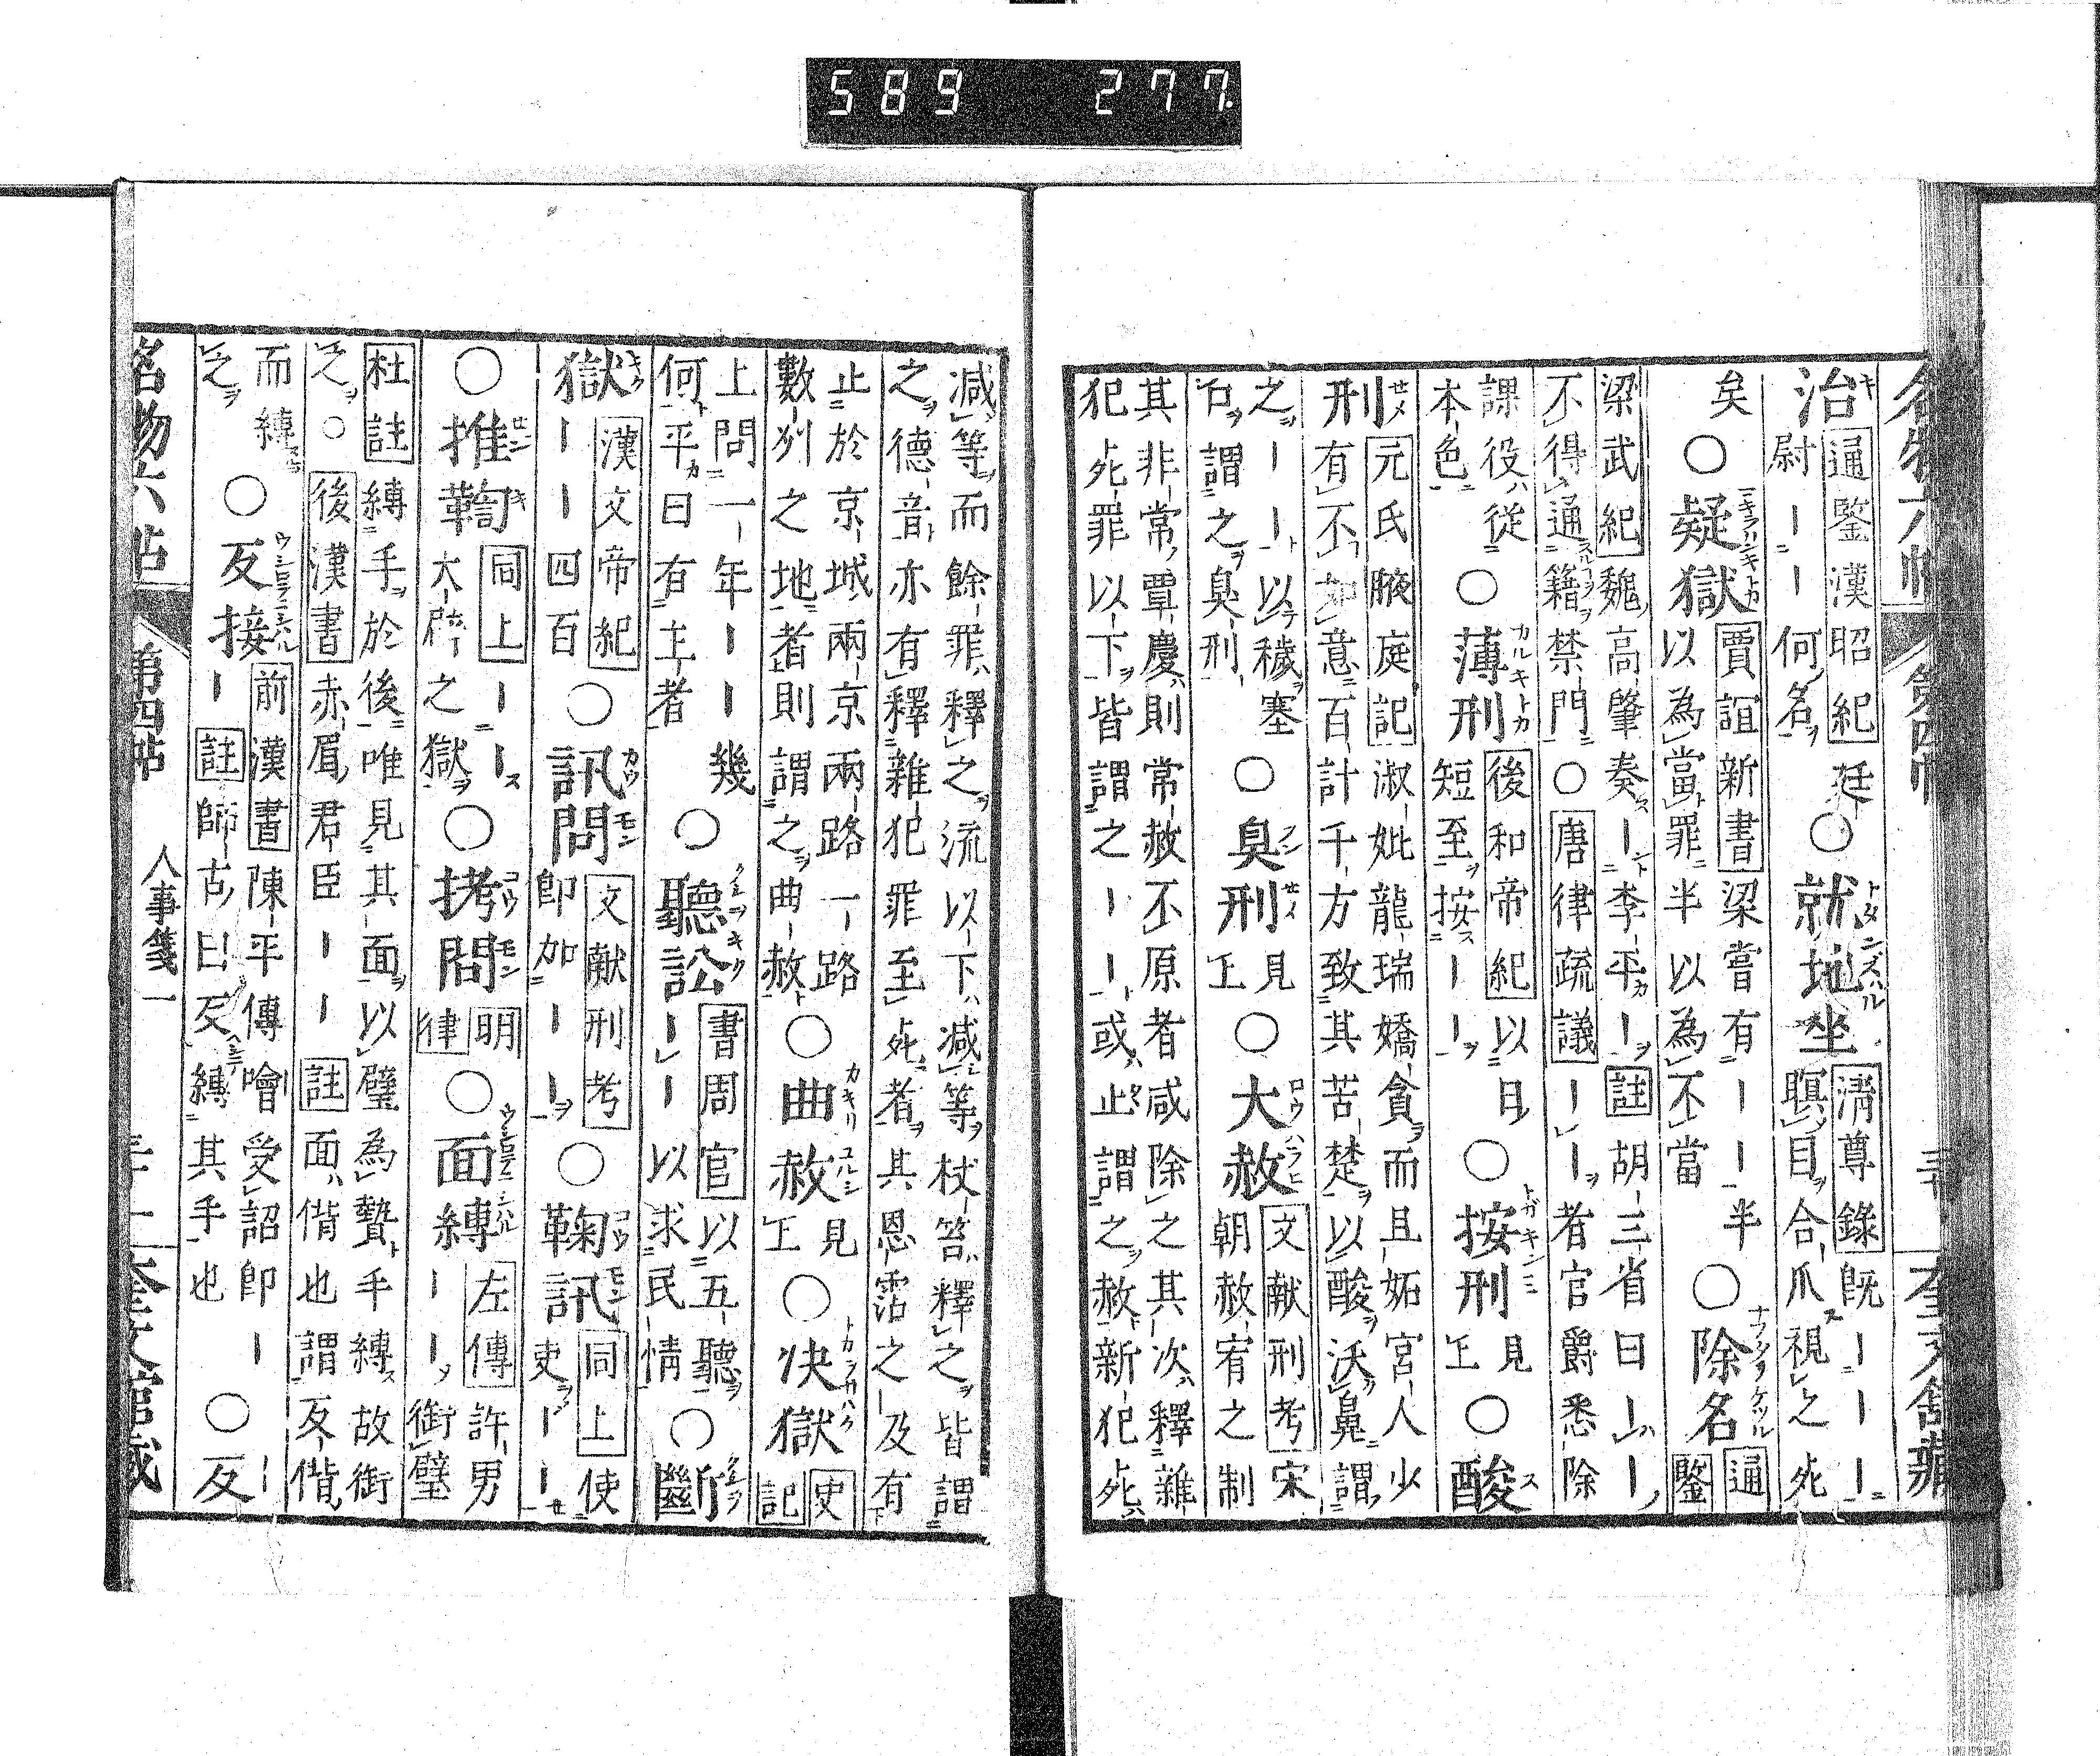 589 277.
名物六帖 第四帖 奎文館藏
治 通鑒漢昭紀 廷
尉｜｜何名 〇就地坐 清尊錄 既｜｜｜
瞑目合爪視之死
矣 〇疑獄 賈誼新書 梁嘗有｜｜半
以為當罪半以為不當 〇除名 通鑒
梁武紀 魏高肇奏｜李平｜ 註 胡三省曰｜｜
不得通籍禁門 〇 唐律疏議 ｜｜者官爵悉除
課役從
本色 〇薄刑 後和帝紀 以日
短至按｜｜ 〇按刑 見上 〇酸
刑 元氏掖庭記 淑妣龍瑞嬌貪而且妬宮人少
有不如意百計千方致其苦楚以酸沃鼻謂
之｜｜以穢塞
口謂之臭刑 〇臭刑 見上 〇大赦 文献刑考 宋
朝赦宥之制
其非常覃慶則常赦不原者咸除之其次釋雜
犯死罪以下皆謂之｜｜或止謂之赦新犯死
減等而餘罪釋之流以下減等杖笞釋之皆謂
之德音亦有釋雜犯罪至死者其恩霑之及有
止於京城兩京兩路一路
數州之地者則謂之曲赦 〇曲赦 見上 〇决獄 史記
上問一年｜｜幾
何平曰有主者 〇聽訟 書周官 以五聽
｜｜以求民情 〇斷
獄 漢文帝紀
｜｜四百 〇訊問 文献刑考
即加｜｜ 〇鞠訊 同上 使
吏｜｜
〇推鞫 同上 ｜｜
大辟之獄 〇拷問 明律 〇面縛 左傳 許男
｜｜銜璧
杜註 縛手於後唯見其面以璧為贄手縛故銜
之〇 後漢書 赤眉君臣｜｜ 註 面偝也謂反偝
而縛
之 〇反接 前漢書 陳平傳噲受詔即｜｜
｜ 註 師古曰反縛其手也 〇反
名物六帖 第四帖 人事箋一 奎文館藏